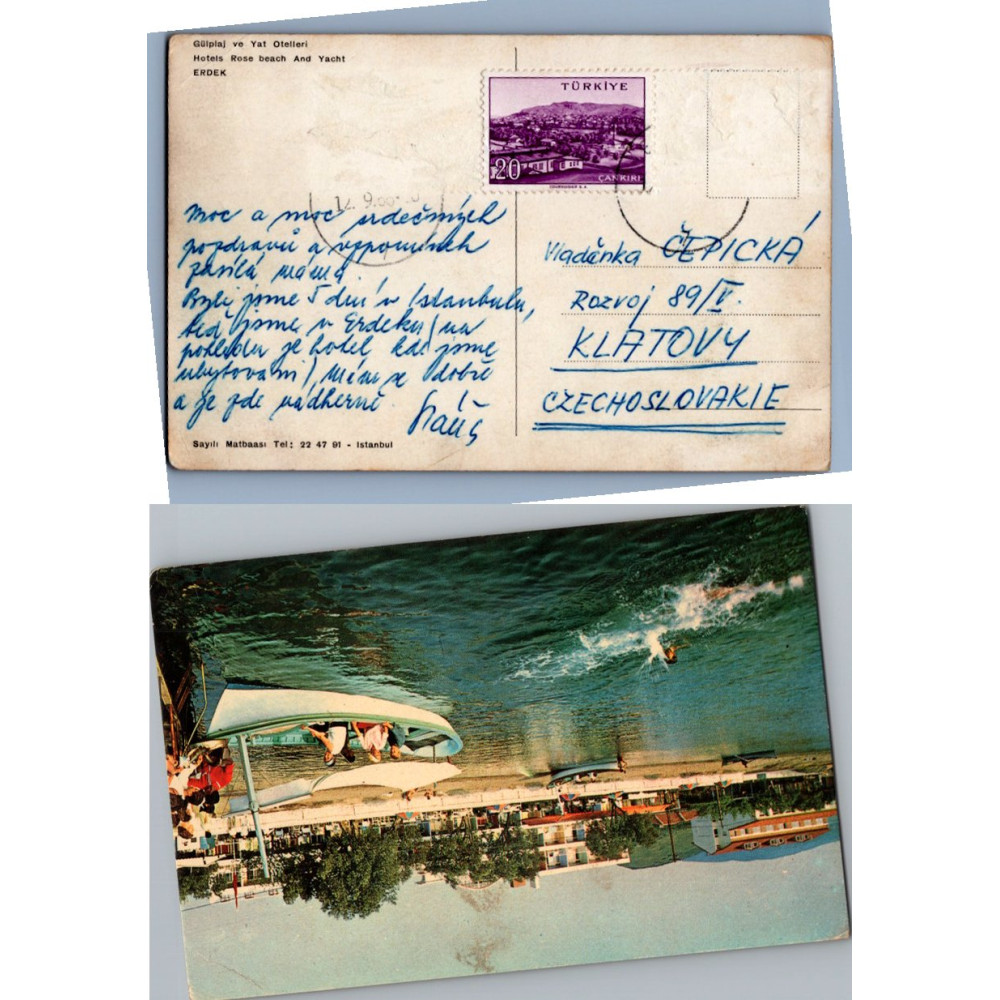 Gülplaj ve Yat Otelleri
Hotels Rose beach And Yacht
ERDEK
TÜRKİYE
20
ÇANKIRI
12. 9.66
Moc a moc srdečných
pozdravů a vzpomínek
zasílá máma.
Byli jsme 5 dní v Istanbulu,
teď jsme v Erdeku (na
pohledu je hotel, kde jsme
ubytováni), máme se dobře
a je zde nádherně.
Vladěnka ČEPICKÁ
Rozvoj 89/IV.
KLATOVY
CZECHOSLOVAKIE
Sayılı Matbaası Tel: 22 47 91 - Istanbul